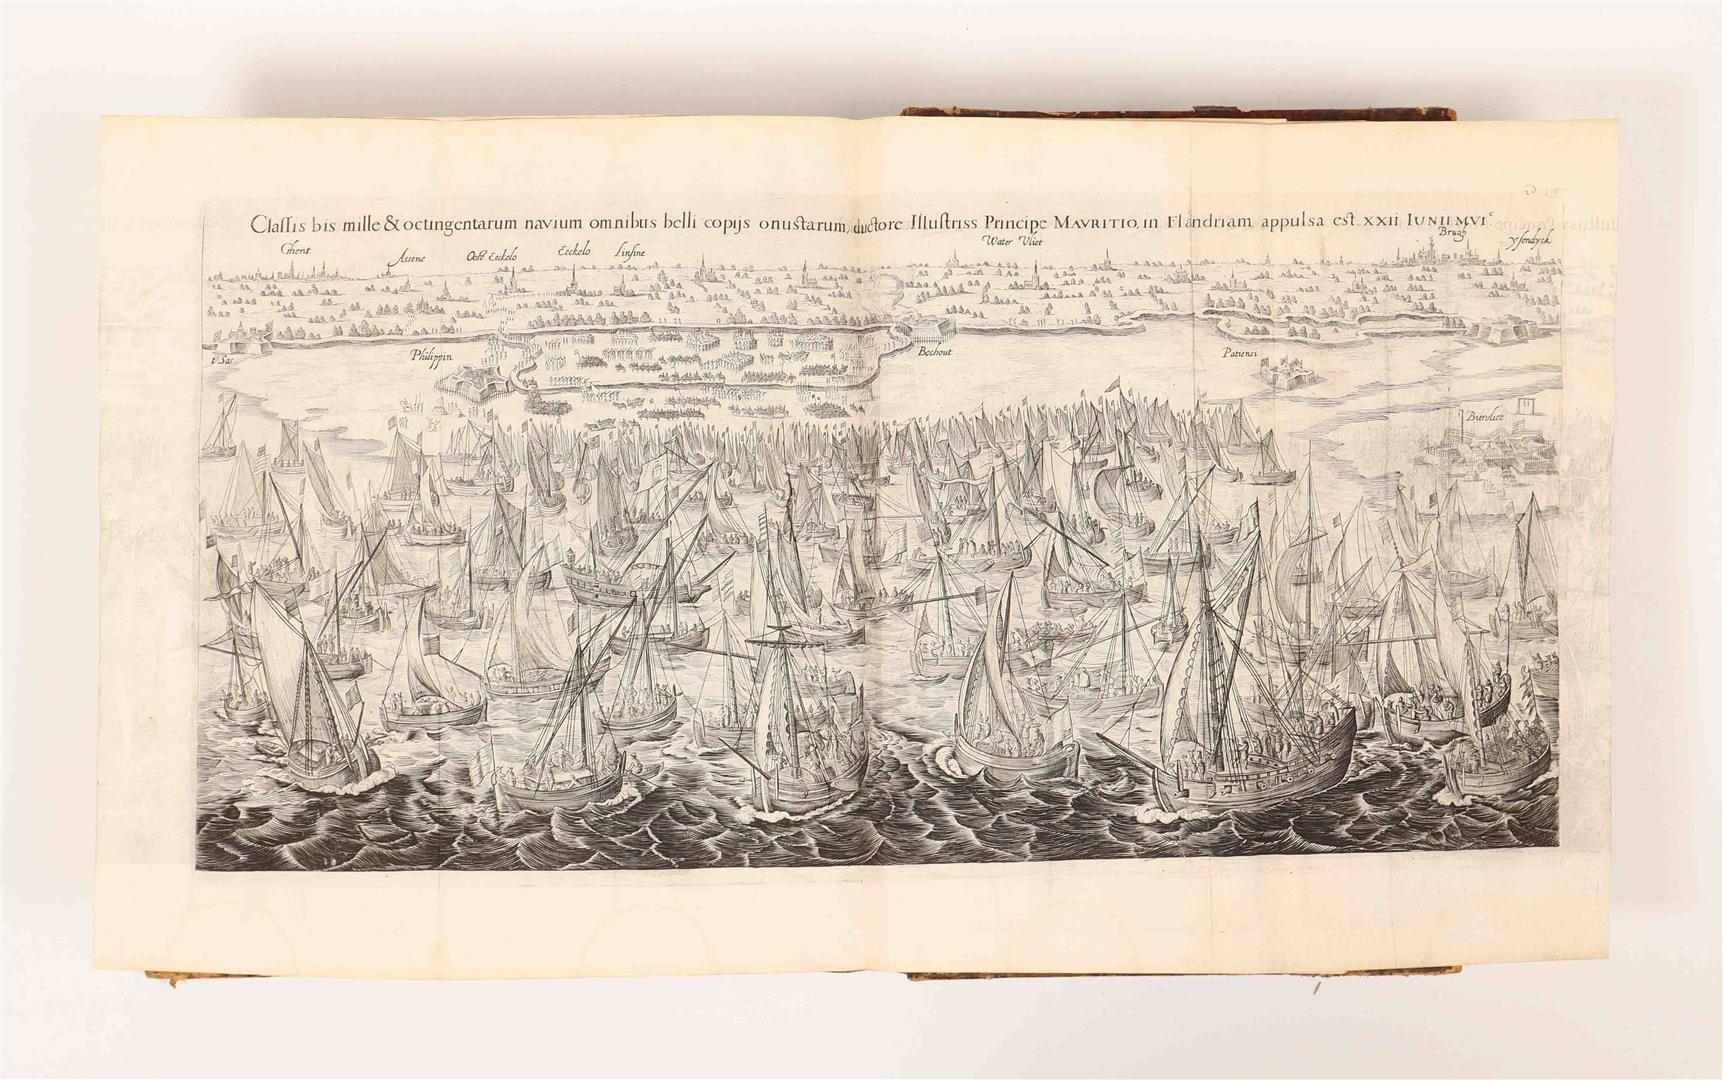 Claſsis bis mille & octingentarum navium omnibus belli copijs onustarum, ductore Illuſtriss Principe MAVRITIO, in Flandriam appulsa est. XXII IUNII MVI^c.
Ghent
Assene
Oost Eeckelo
Eeckelo
Linsine
Water Vliet
Brugh
Ysendyck
t Sas
Philippin
Bochout
Patiensi
Biervliet